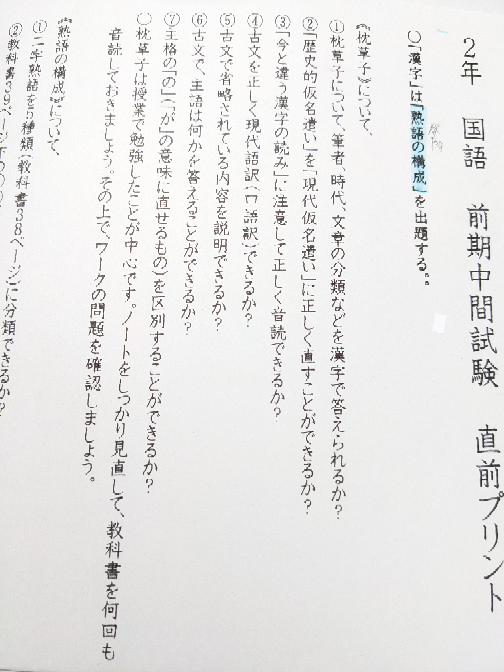 2年 国語 前期中間試験 直前プリント
○「漢字」は「熟語の構成」を出題する。。
《枕草子》について、
①枕草子について、筆者、時代、文章の分類などを漢字で答えられるか?
②「歴史的仮名遣い」を「現代仮名遣い」に正しく直すことができるか?
③「今と違う漢字の読み」に注意して正しく音読できるか?
④古文を正しく現代語訳(口語訳)できるか?
⑤古文で省略されている内容を説明できるか?
⑥古文で、主語は何かを答えることができるか?
⑦主格の「の」(「が」の意味に直せるもの)を区別することができるか?
○枕草子は授業で勉強したことが中心です。ノートをしっかり見直して、教科書を何回も
音読しておきましょう。その上で、ワークの問題を確認しましょう。
《熟語の構成》について、
①二字熟語を5種類(教科書38ページ)に分類できるか?
②教科書39ページ下の